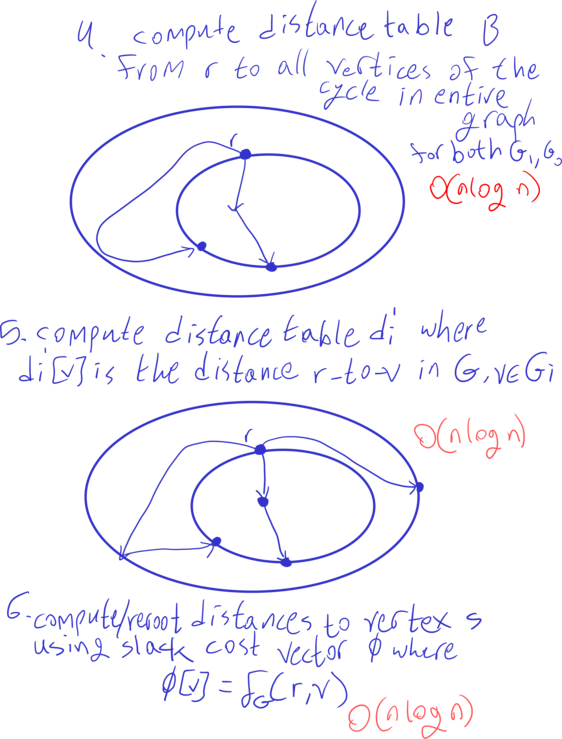 4. compute distance table B
from r to all vertices of the
cycle in entire
graph
for both G₁, G₂
O(n log n)
r
5. compute distance table di where
di[v] is the distance r-to-v in G, v∈Gi
O(n log n)
r
6. compute/reroot distances to vertex s
using slack cost vector ϕ where
ϕ[v] = δG(r,v)
O(n log n)